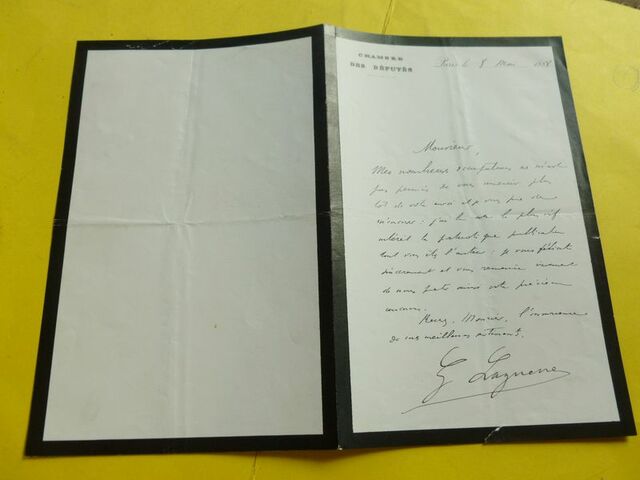 CHAMBRE
DES DÉPUTÉS
Paris le 8 Mai 1888
Monsieur,
Mes nombreuses occupations ne m'ont
pas permis de vous remercier plus
tôt de votre envoi et je vous prie de
m'excuser : j'ai lu avec le plus vif
intérêt la patriotique publication
dont vous êtes l'auteur : je vous félicite
sincèrement et vous remercie vivement
de nous prêter ainsi votre précieux
concours.
Recevez, Monsieur, l'assurance
de mes meilleurs sentiments.
G Laguerre